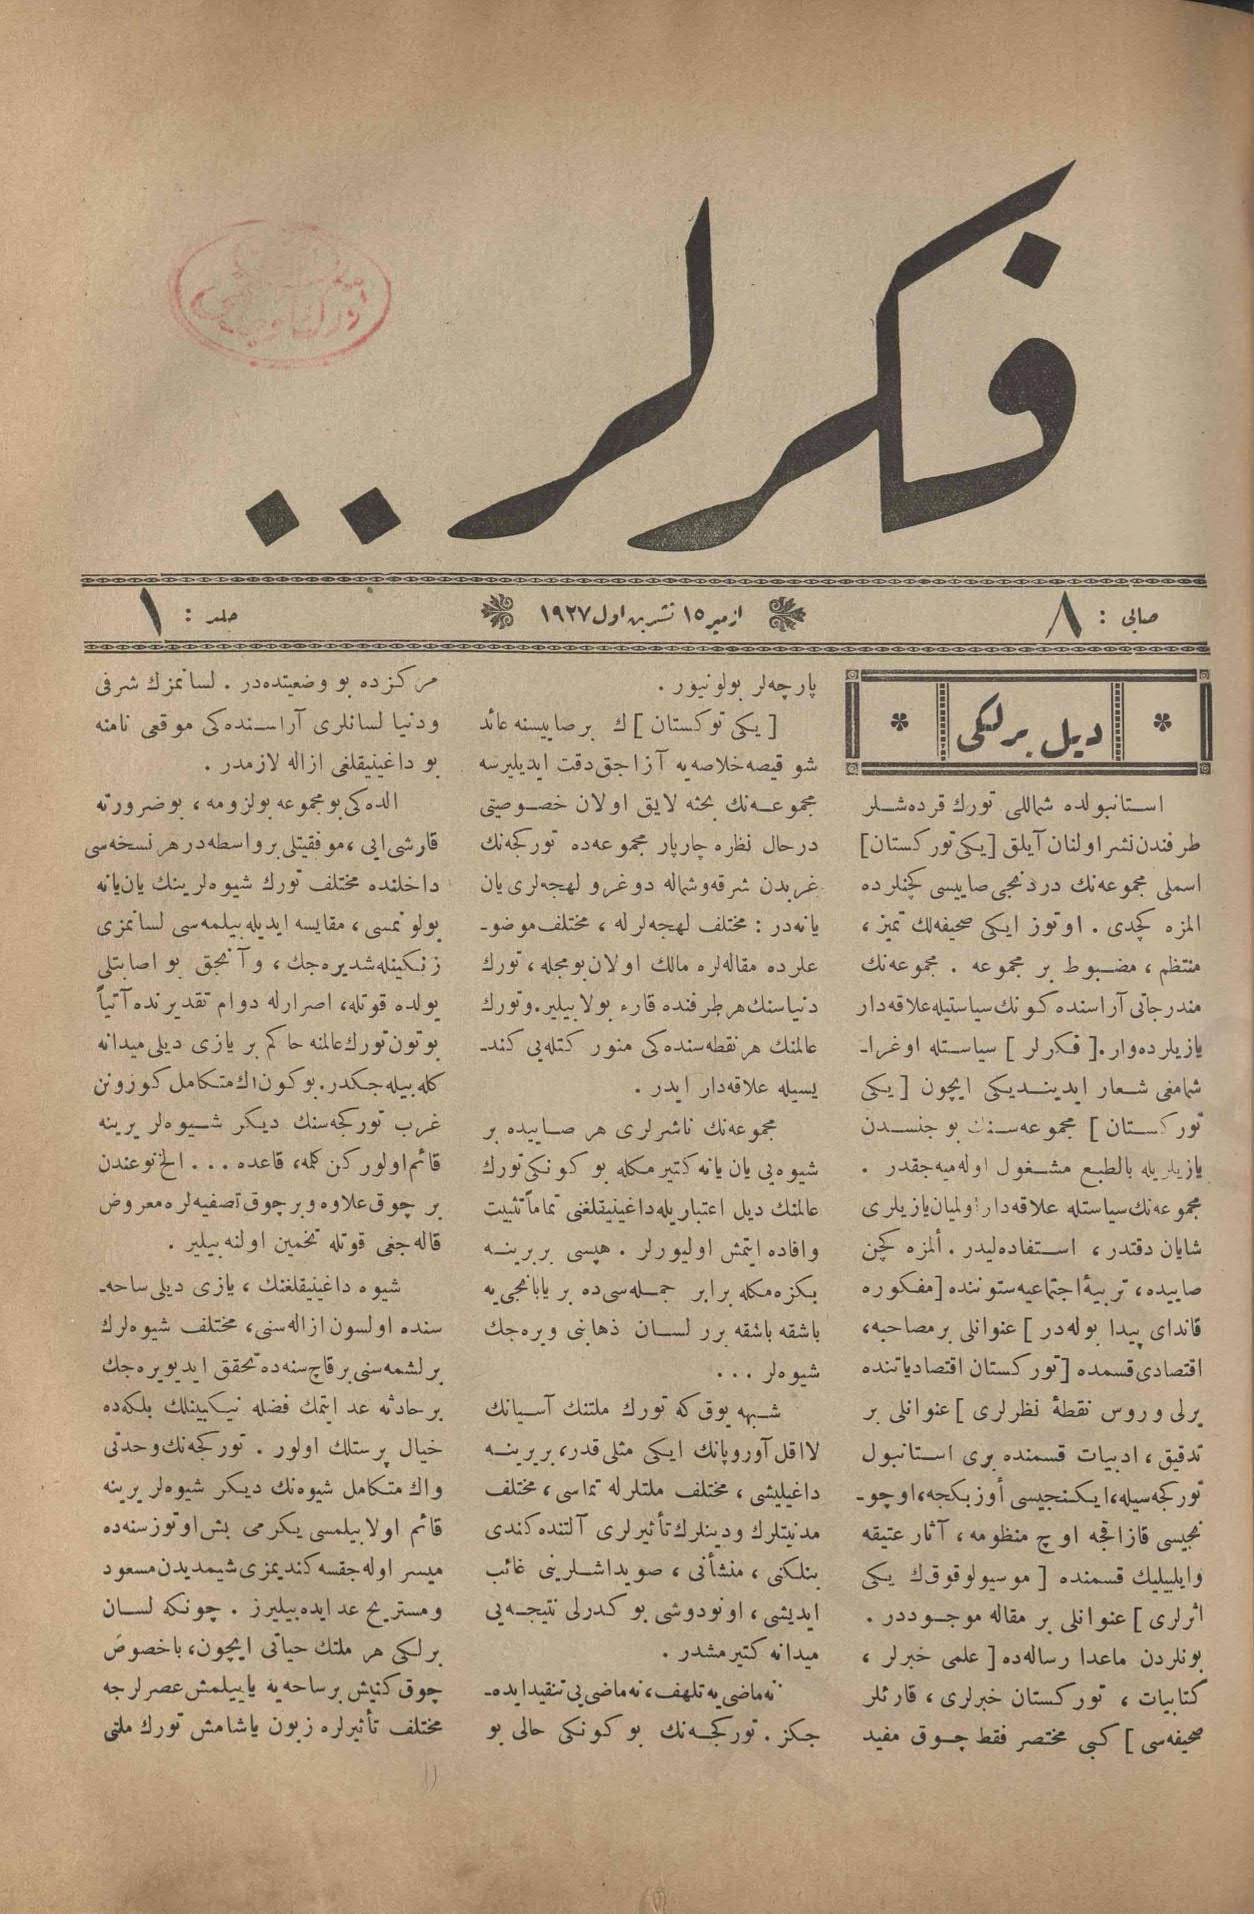 فكرلر..
صایی : ٨
ازمیر ١٥ تشرین اول ١٩٢٧
جلد : ١
دیل برلكی
استانبولده شماللی تورك قرده‌شلر
طرفندن نشر اولنان آیلق [یكی توركستان]
اسملی مجموعه‌نك دردنجی صاییسی كچنلرده
المزه كچدی . اوتوز ایكی صحیفه‌لك تمیز ،
منتظم ، مضبوط بر مجموعه . مجموعه‌نك
مندرجاتی آراسنده كونك سیاستیله علاقه‌دار
یازیلرده وار . [ فكرلر ] سیاستله اوغرا-
شمامغی شعار ایدیندیكی ایچون [ یكی
توركستان ] مجموعه‌سنك بو جنسدن
یازیلریله بالطبع مشغول اوله‌میه‌جقدر .
مجموعه‌نك سیاستله علاقه‌دار اولمیان یازیلری
شایان دقتدر ، استفاده‌لیدر . المزه كچن
صاییده ، تربیهٔ اجتماعیه ستوننده [ مفكوره
قاندای پیدا بوله‌در ] عنوانلی بر مصاحبه ،
اقتصادی قسمده [ توركستان اقتصادیاتنده
یرلی وروس نقطهٔ نظرلری ] عنوانلی بر
تدقیق ، ادبیات قسمنده بری استانبول
توركجه‌سیله ، ایكنجیسی أوزبكجه ، اوچو-
نجیسی قازاقجه اوچ منظومه ، آثار عتیقه
وایلبیلیك قسمنده [ موسیولوقوق‌ك یكی
اثرلری ] عنوانلی بر مقاله موجوددر .
بونلردن ماعدا رساله‌ده [ علمی خبرلر ،
كتابیات ، توركستان خبرلری ، قارئلر
صحیفه‌سی ] كبی مختصر فقط چوق مفید
پارچه‌لر بولونیور .
[ یكی توكستان ] ك بر صاییسنه عائد
شو قیصه خلاصه‌یه آزاجق دقت ایدیلیرسه
مجموعه‌نك بحثه لایق اولان خصوصیتی
درحال نظره چارپار مجموعه‌ده توركجه‌نك
غربدن شرقه وشماله دوغرو لهجه‌لری یان
یانه‌در : مختلف لهجه‌لرله ، مختلف موضو-
علرده مقاله‌لره مالك اولان بو مجله ، تورك
دنیاسنك هر طرفنده قارء بولابیلیر . وتورك
عالمنك هر نقطه‌سنده‌كی منور كتله‌یی كند-
یسیله علاقه‌دار ایدر .
مجموعه‌نك ناشرلری هر صاییده بر
شیوه‌یی یان یانه كتیرمكله بو كونكی تورك
عالمنك دیل اعتباریله داغینیقلغنی تماماً تثبیت
وافاده ایتمش اولیورلر . هپسی بربرینه
بكزه‌مكله برابر جمله‌سی ده بر یابانجی‌یه
باشقه باشقه برر لسان ذهابنی ویره‌جك
شیوه‌لر ...
شبهه یوق كه تورك ملتنك آسیانك
لااقل آوروپانك ایكی مثلی قدر ، بربرینه
داغیلیشی ، مختلف ملتلرله تماسی ، مختلف
مدنیتلرك ودینلرك تأثیرلری آلتنده كندی
بنلكنی ، منشأنی ، صویداشلرینی غائب
ایدیشی ، اونودوشی بو كدرلی نتیجه‌یی
میدانه كتیرمشدر .
نه ماضی‌یه تلهف ، نه ماضی‌یی تنقید ایده-
جكز . توركجه‌نك بو كونكی حالی بو
مركزده بو وضعیتده‌در . لسانمزك شرفی
ودنیا لسانلری آراسنده‌كی موقعی نامنه
بو داغینیقلغی ازاله لازمدر .
الده‌كی بو مجموعه بو لزومه ، بو ضرورته
قارشی ایی ، موفقیتلی بر واسطه‌در هر نسخه‌سی
داخلنده مختلف تورك شیوه‌لرینك یان یانه
بولونمسی ، مقایسه ایدیله‌بیلمه‌سی لسانمزی
زنكینله‌شدیره‌جك ، وآنجق بو اصابتلی
یولده قوتله ، اصرارله دوام تقدیرنده آتیاً
بوتون تورك عالمنه حاكم بر یازی دیلی میدانه
كله‌بیله‌جكدر . بو كون اك متكامل كوزونن
غرب توركجه‌سنك دیكر شیوه‌لر یرینه
قائم اولوركن كلمه ، قاعده ... الخ نوعندن
بر چوق علاوه وبر چوق تصفیه‌لره معروض
قاله‌جغی قوتله تخمین اولنه‌بیلیر .
شیوه داغینیقلغنك ، یازی دیلی ساحه-
سنده اولسون ازاله‌سنی ، مختلف شیوه‌لرك
برلشمه‌سنی بر قاچ سنه‌ده تحقق ایدیویره‌جك
بر حادثه عد ایتمك فضله نیكبینلك بلكه‌ده
خیال پرستلك اولور . توركجه‌نك وحدتی
واك متكامل شیوه‌نك دیكر شیوه‌لر یرینه
قائم اولابیلمسی یكرمی بش اوتوز سنه‌ده
میسر اوله‌جقسه كندیمزی شیمدیدن مسعود
ومستریح عد ایده‌بیلیرز . چونكه لسان
برلكی هر ملتك حیاتی ایچون ، باخصوص
چوق كنیش بر ساحه‌یه یاییلمش عصرلرجه
مختلف تأثیرلره زبون یاشامش تورك ملتی